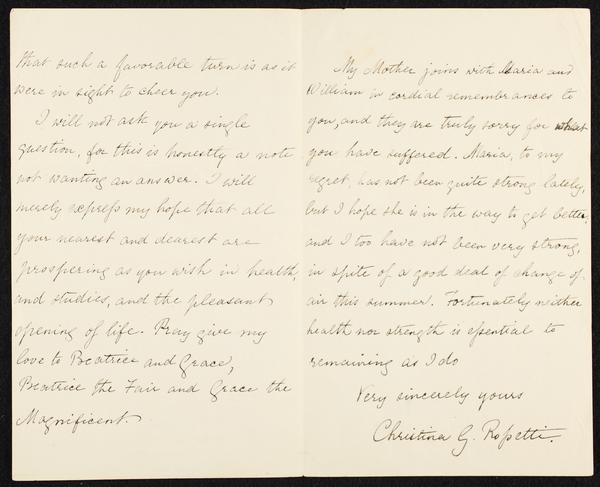 that such a favorable turn is as it
were in sight to cheer you.
I will not ask you a single
question, for this is honestly a note
not wanting an answer. I will
merely express my hope that all
your nearest and dearest are
prospering as you wish in health,
and studies, and the pleasant
opening of life. Pray give my
love to Beatrice and Grace,
Beatrice the Fair and Grace the
Magnificent.
My Mother joins with Maria and
William in cordial remembrances to
you, and they are truly sorry for what
you have suffered. Maria, to my
regret, has not been quite strong lately,
but I hope she is in the way to get better;
and I too have not been very strong,
in spite of a good deal of change of
air this summer. Fortunately neither
health nor strength is essential to
remaining as I do
Very sincerely yours
Christina G. Rossetti.